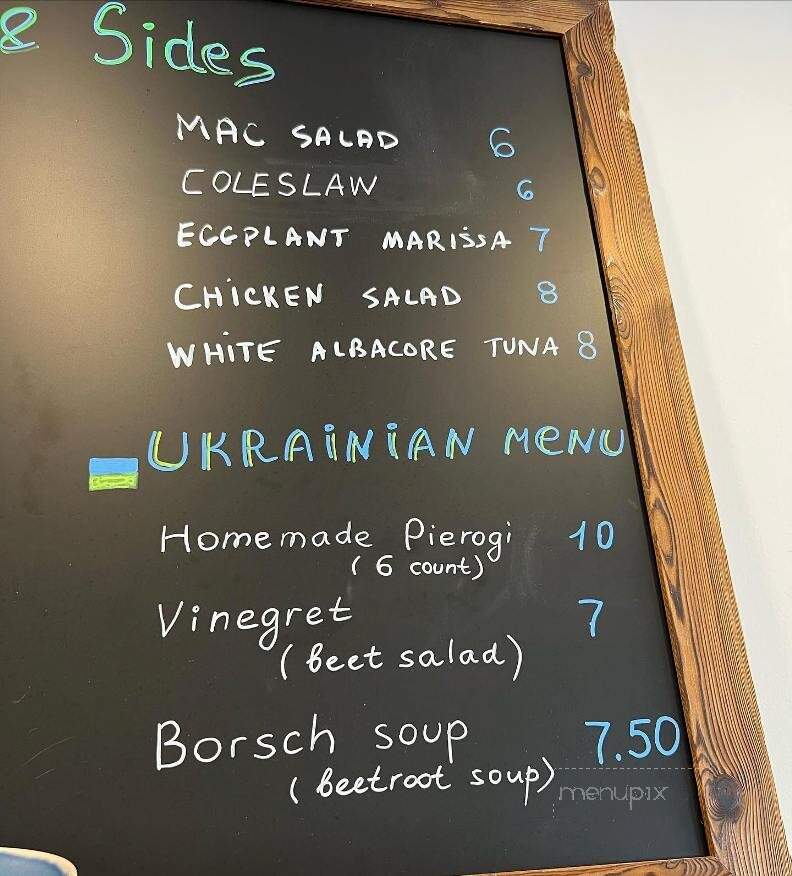 & Sides
MAC SALAD 6
COLESLAW 6
EGGPLANT MARISSA 7
CHICKEN SALAD 8
WHITE ALBACORE TUNA 8
UKRAINIAN MENU
Homemade Pierogi 10
(6 count)
Vinegret 7
(beet salad)
Borsch soup 7.50
(beetroot soup)
menupix